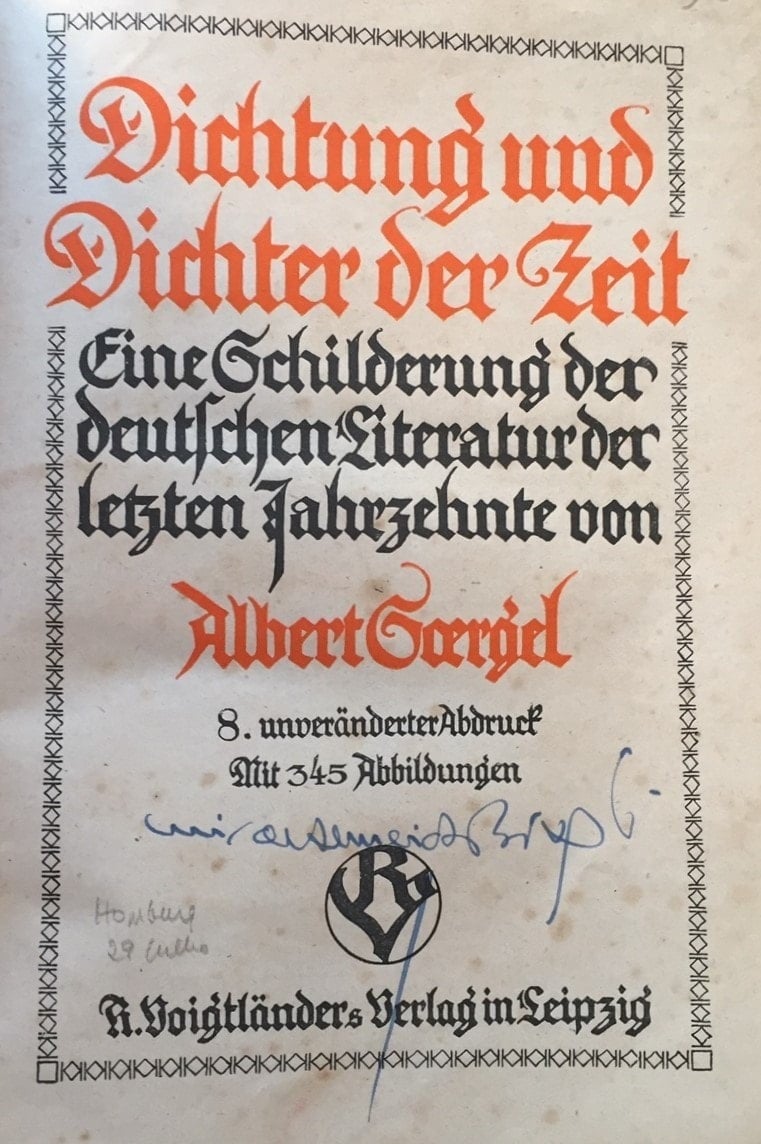 Dichtung und
Dichter der Zeit
Eine Schilderung der
deutschen Literatur der
letzten Jahrzehnte von
Albert Soergel
8. unveränderter Abdruck
Mit 345 Abbildungen
RV
Hamburg
29
R. Voigtländers Verlag in Leipzig